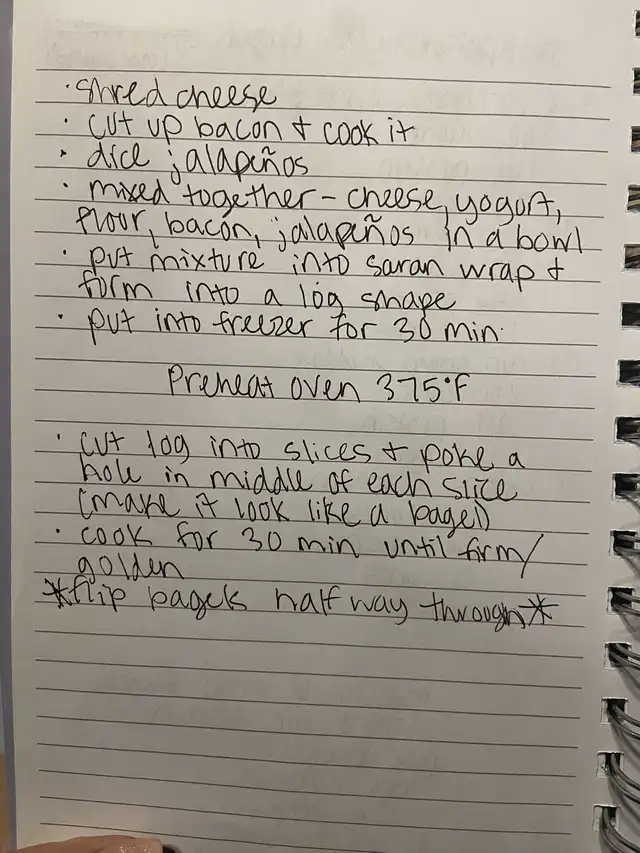 · shred cheese
· cut up bacon + cook it
· dice jalapeños
· mixed together - cheese, yogurt,
flour, bacon, jalapeños in a bowl
· put mixture into saran wrap +
form into a log shape
· put into freezer for 30 min.
Preheat oven 375°F
· cut log into slices + poke a
hole in middle of each slice
(make it look like a bagel)
· cook for 30 min until firm/
golden
*flip bagels halfway through*